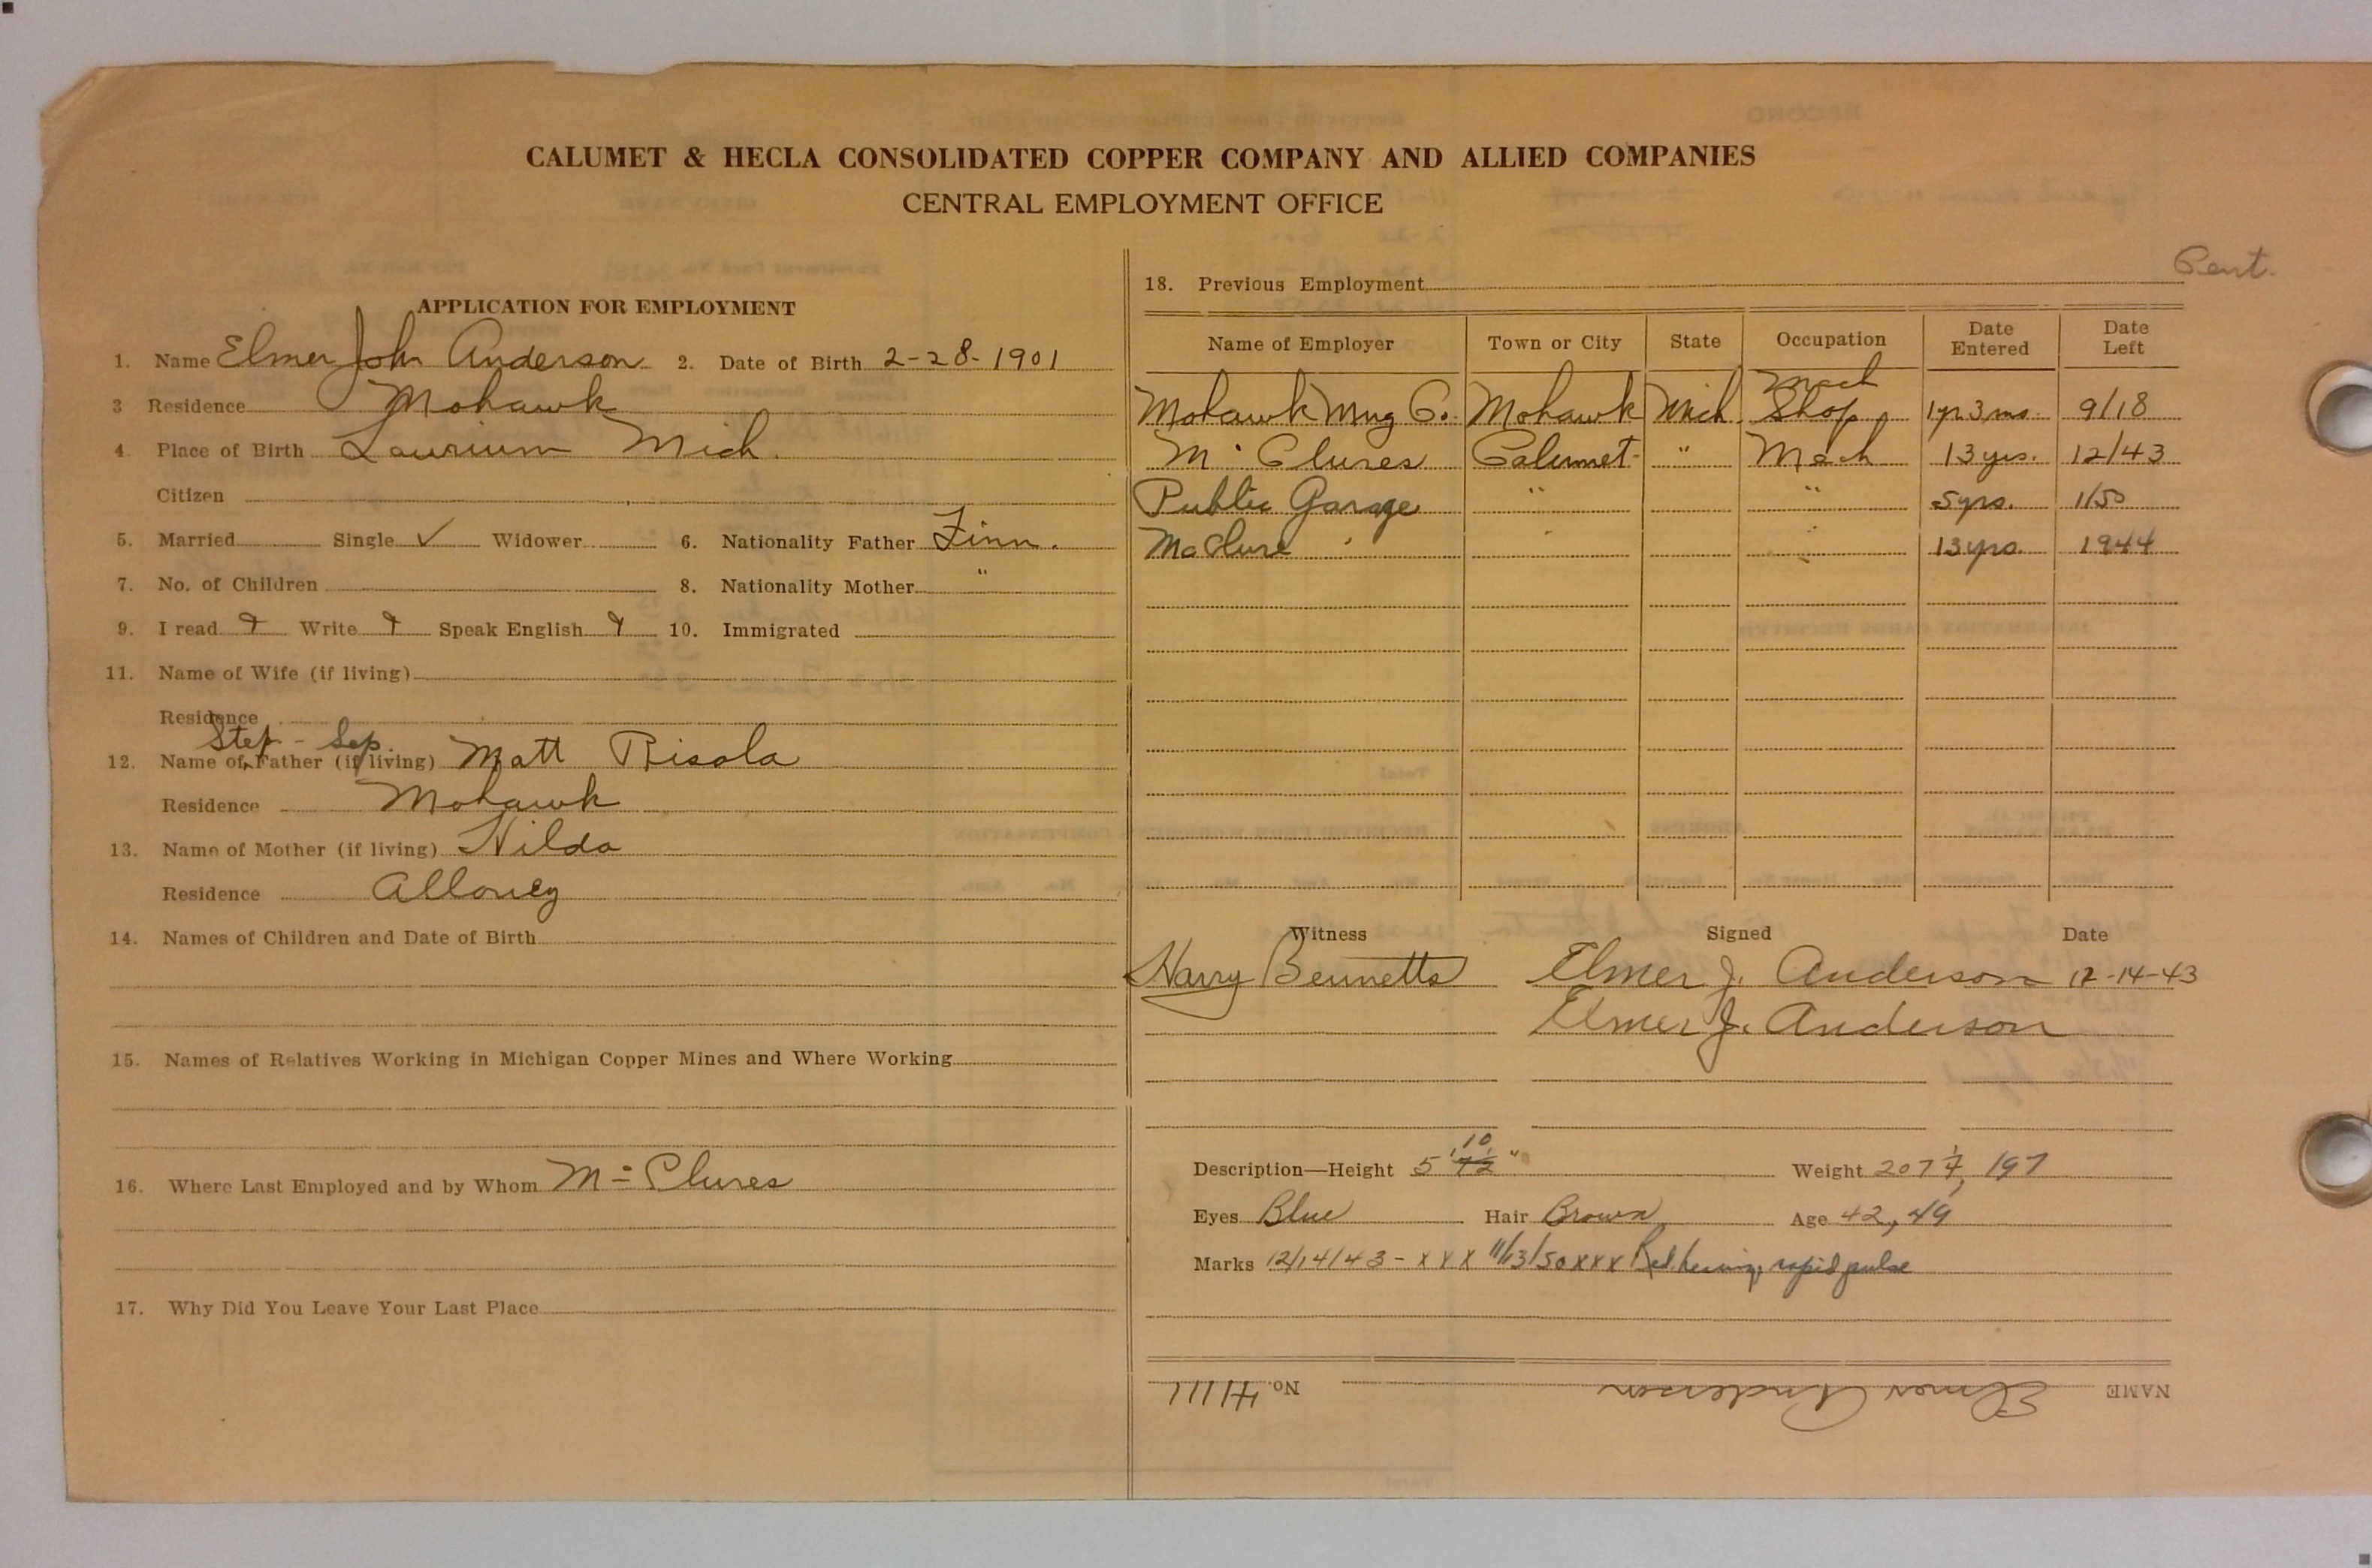 CALUMET & HECLA CONSOLIDATED COPPER COMPANY AND ALLIED COMPANIES
CENTRAL EMPLOYMENT OFFICE
APPLICATION FOR EMPLOYMENT
1. Name Elmer John Anderson 2. Date of Birth 2-28-1901
3 Residence Mohawk
4. Place of Birth Laurium Mich.
Citizen
5. Married Single ✓ Widower 6. Nationality Father Finn.
7. No. of Children 8. Nationality Mother "
9. I read Write Speak English 10. Immigrated
11. Name of Wife (if living)
Residence
Step - Sep.
12. Name of Father (if living) Matt Risola
Residence Mohawk
13. Name of Mother (if living) Hilda
Residence Allouey
14. Names of Children and Date of Birth
15. Names of Relatives Working in Michigan Copper Mines and Where Working
16. Where Last Employed and by Whom Mc Clures
17. Why Did You Leave Your Last Place
Pent.
18. Previous Employment
Name of Employer Town or City State Occupation Date Entered Date Left
Mohawk Mng Co. Mohawk Mich. Mach Shop 1yr 3mo. 9/18
Mc Clures Calumet " Mech 13 yrs. 12/43
Public Garage " " 5yrs. 1/50
McClure " " 13yrs. 1944
Witness Signed Date
Harry Bennetts Elmer J. Anderson 12-14-43
Elmer J. Anderson
10
Description—Height 5' " Weight 207 1/4, 197
Eyes Blue Hair Brown Age 42, 49
Marks 12/14/43 - x x x 11/13/50 xxx Red. hearing, rapid pulse
NAME Elmer Anderson No. H1111